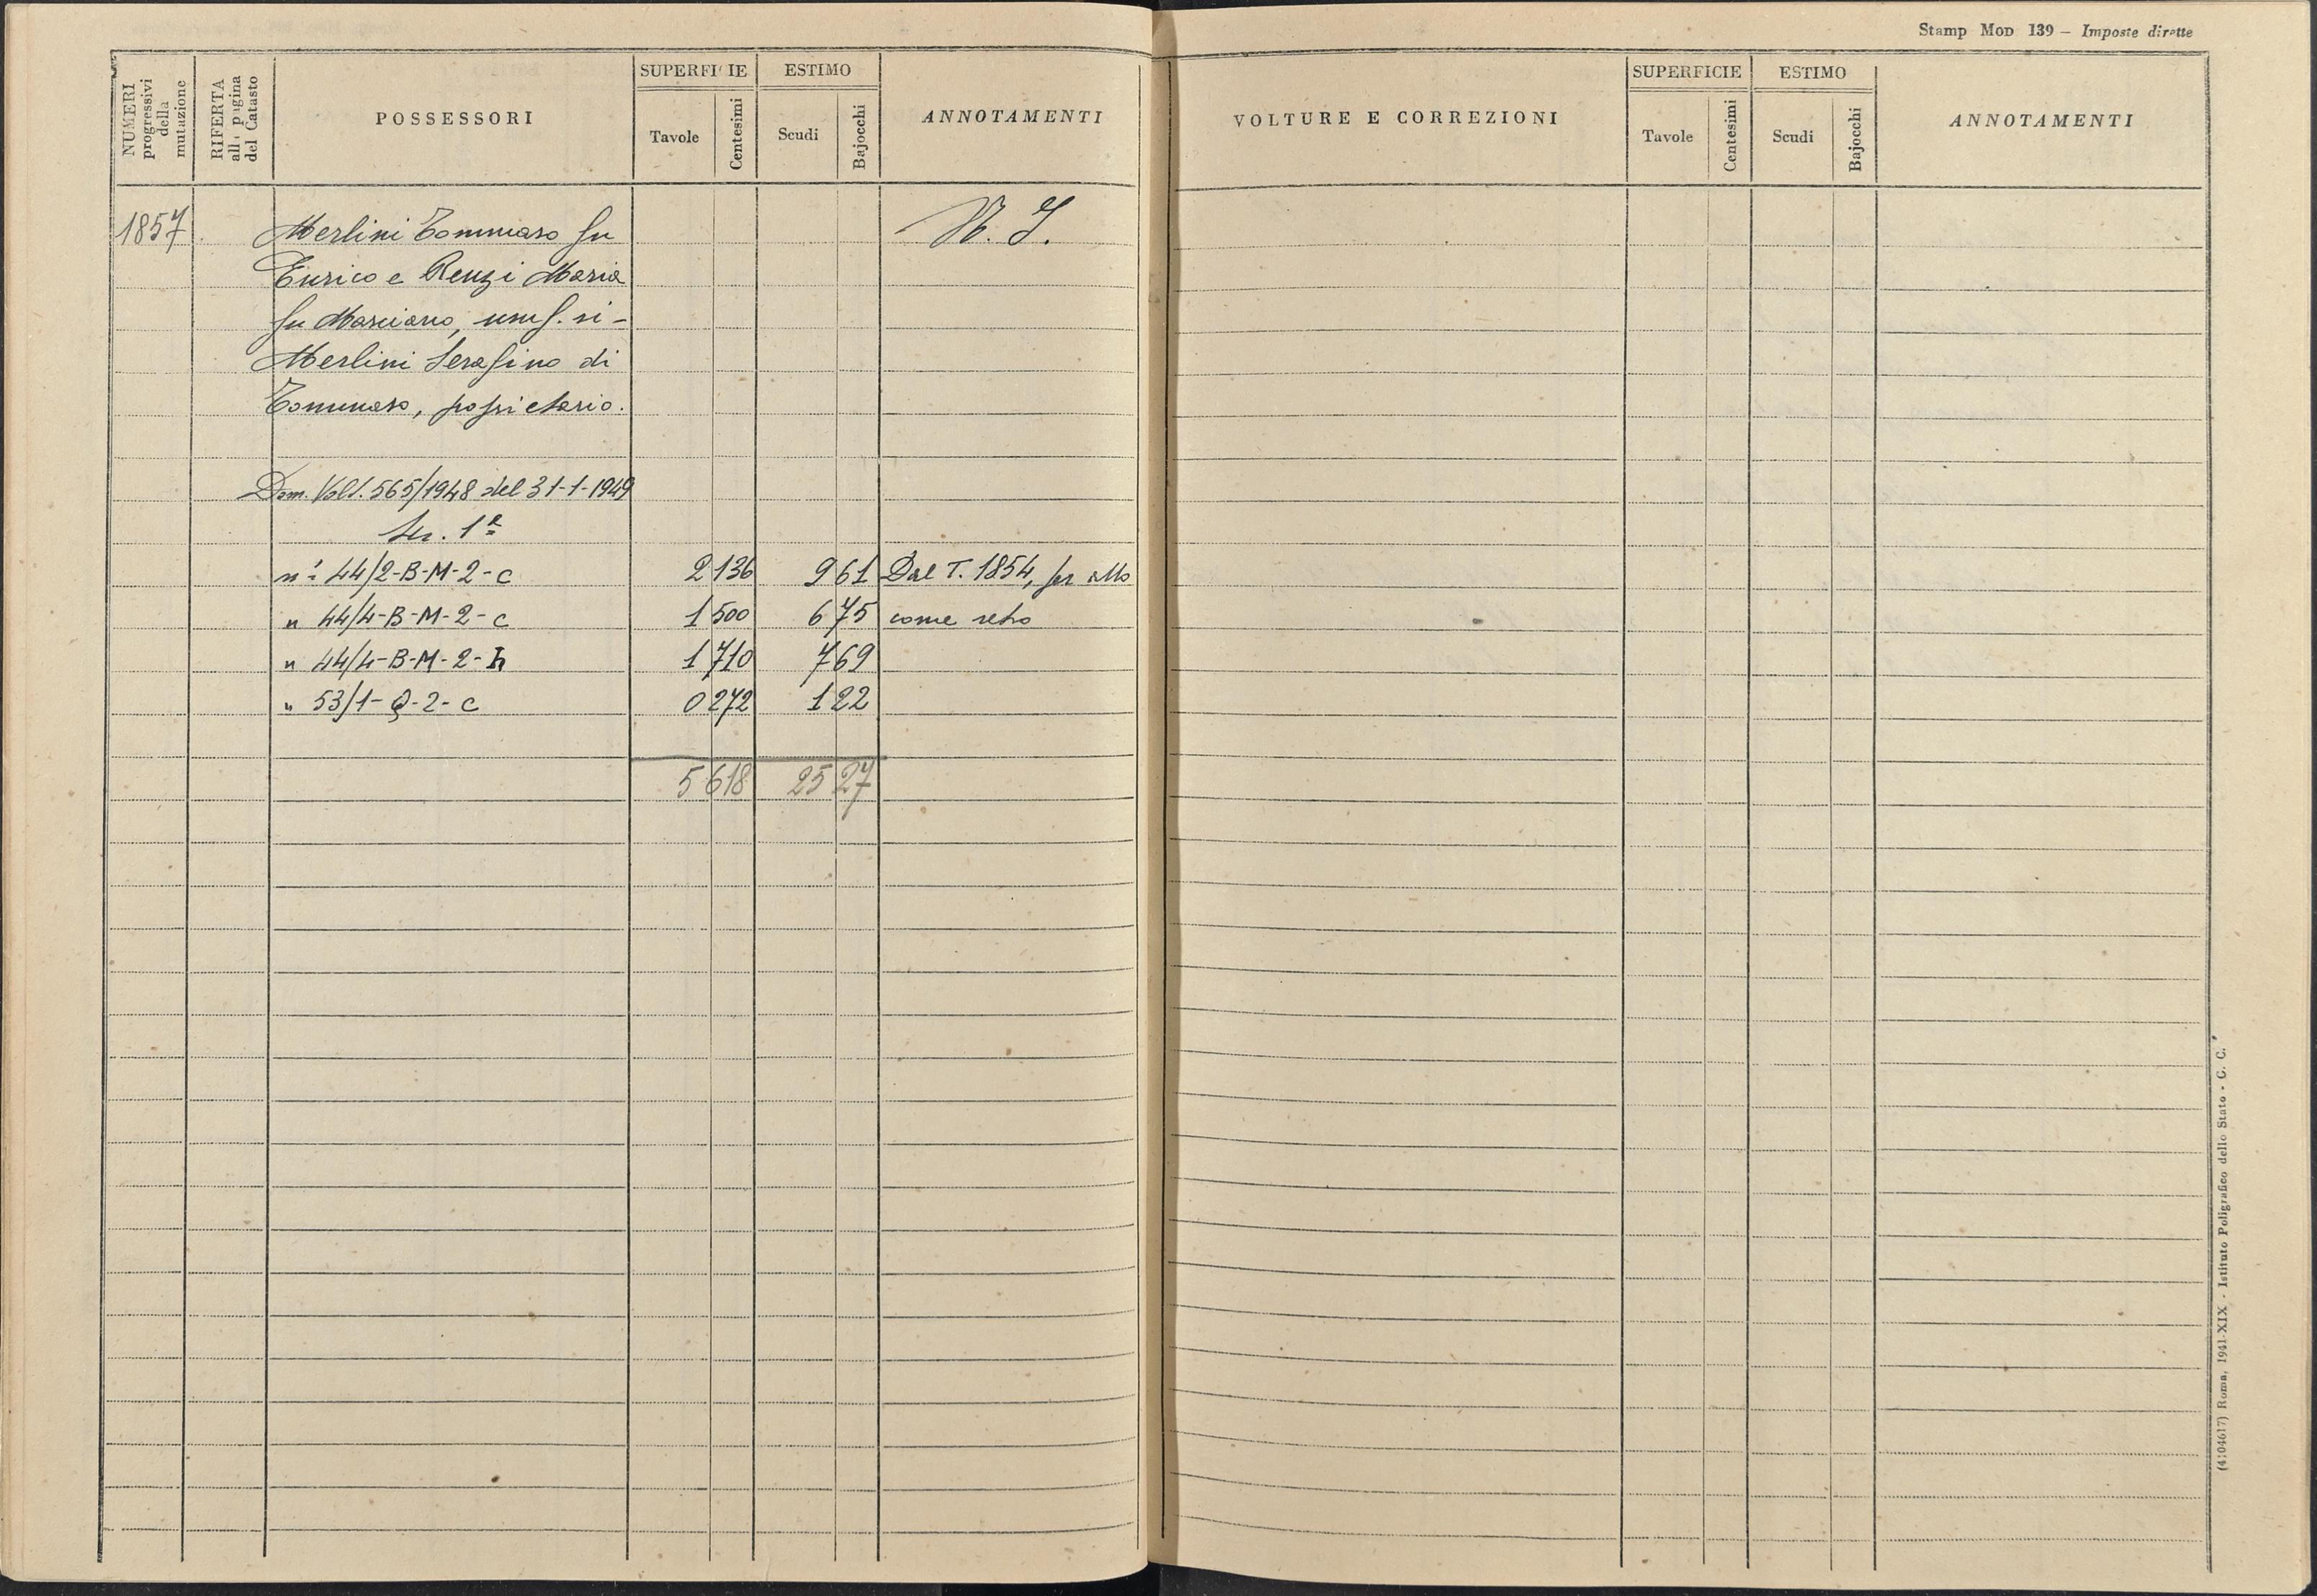 Stamp Mod 139 — Imposte dirette
NUMERI progressivi della mutazione
RIFERTA alla pagina del Catasto
POSSESSORI
SUPERFICIE
Tavole
Centesimi
ESTIMO
Scudi
Bajocchi
ANNOTAMENTI
VOLTURE E CORREZIONI
SUPERFICIE
Tavole
Centesimi
ESTIMO
Scudi
Bajocchi
ANNOTAMENTI
1857 Merlini Tommaso fu
Enrico e Renzi Maria
fu Marciano, usuf. ri-
Merlini Serafino di
Tommaso, proprietario.
Dom. Volt. 565/1948 del 31-1-1949
Sez. 1ª
n° 44/2-B-M-2-c 2 136 9 61 Dal T. 1854, per atto
" 44/4-B-M-2-c 1 500 6 75 come retro
" 44/4-B-M-2-h 1 710 7 69
" 53/1-Q-2-c 0 272 1 22
5 618 25 27
(4104617) Roma, 1941-XIX - Istituto Poligrafico dello Stato - G. C.